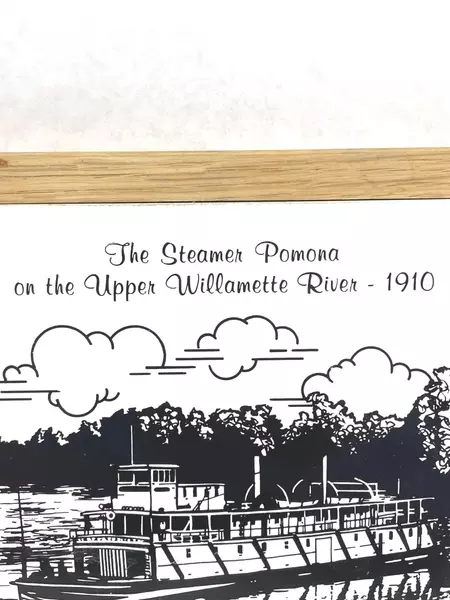 The Steamer Pomona
on the Upper Willamette River - 1910